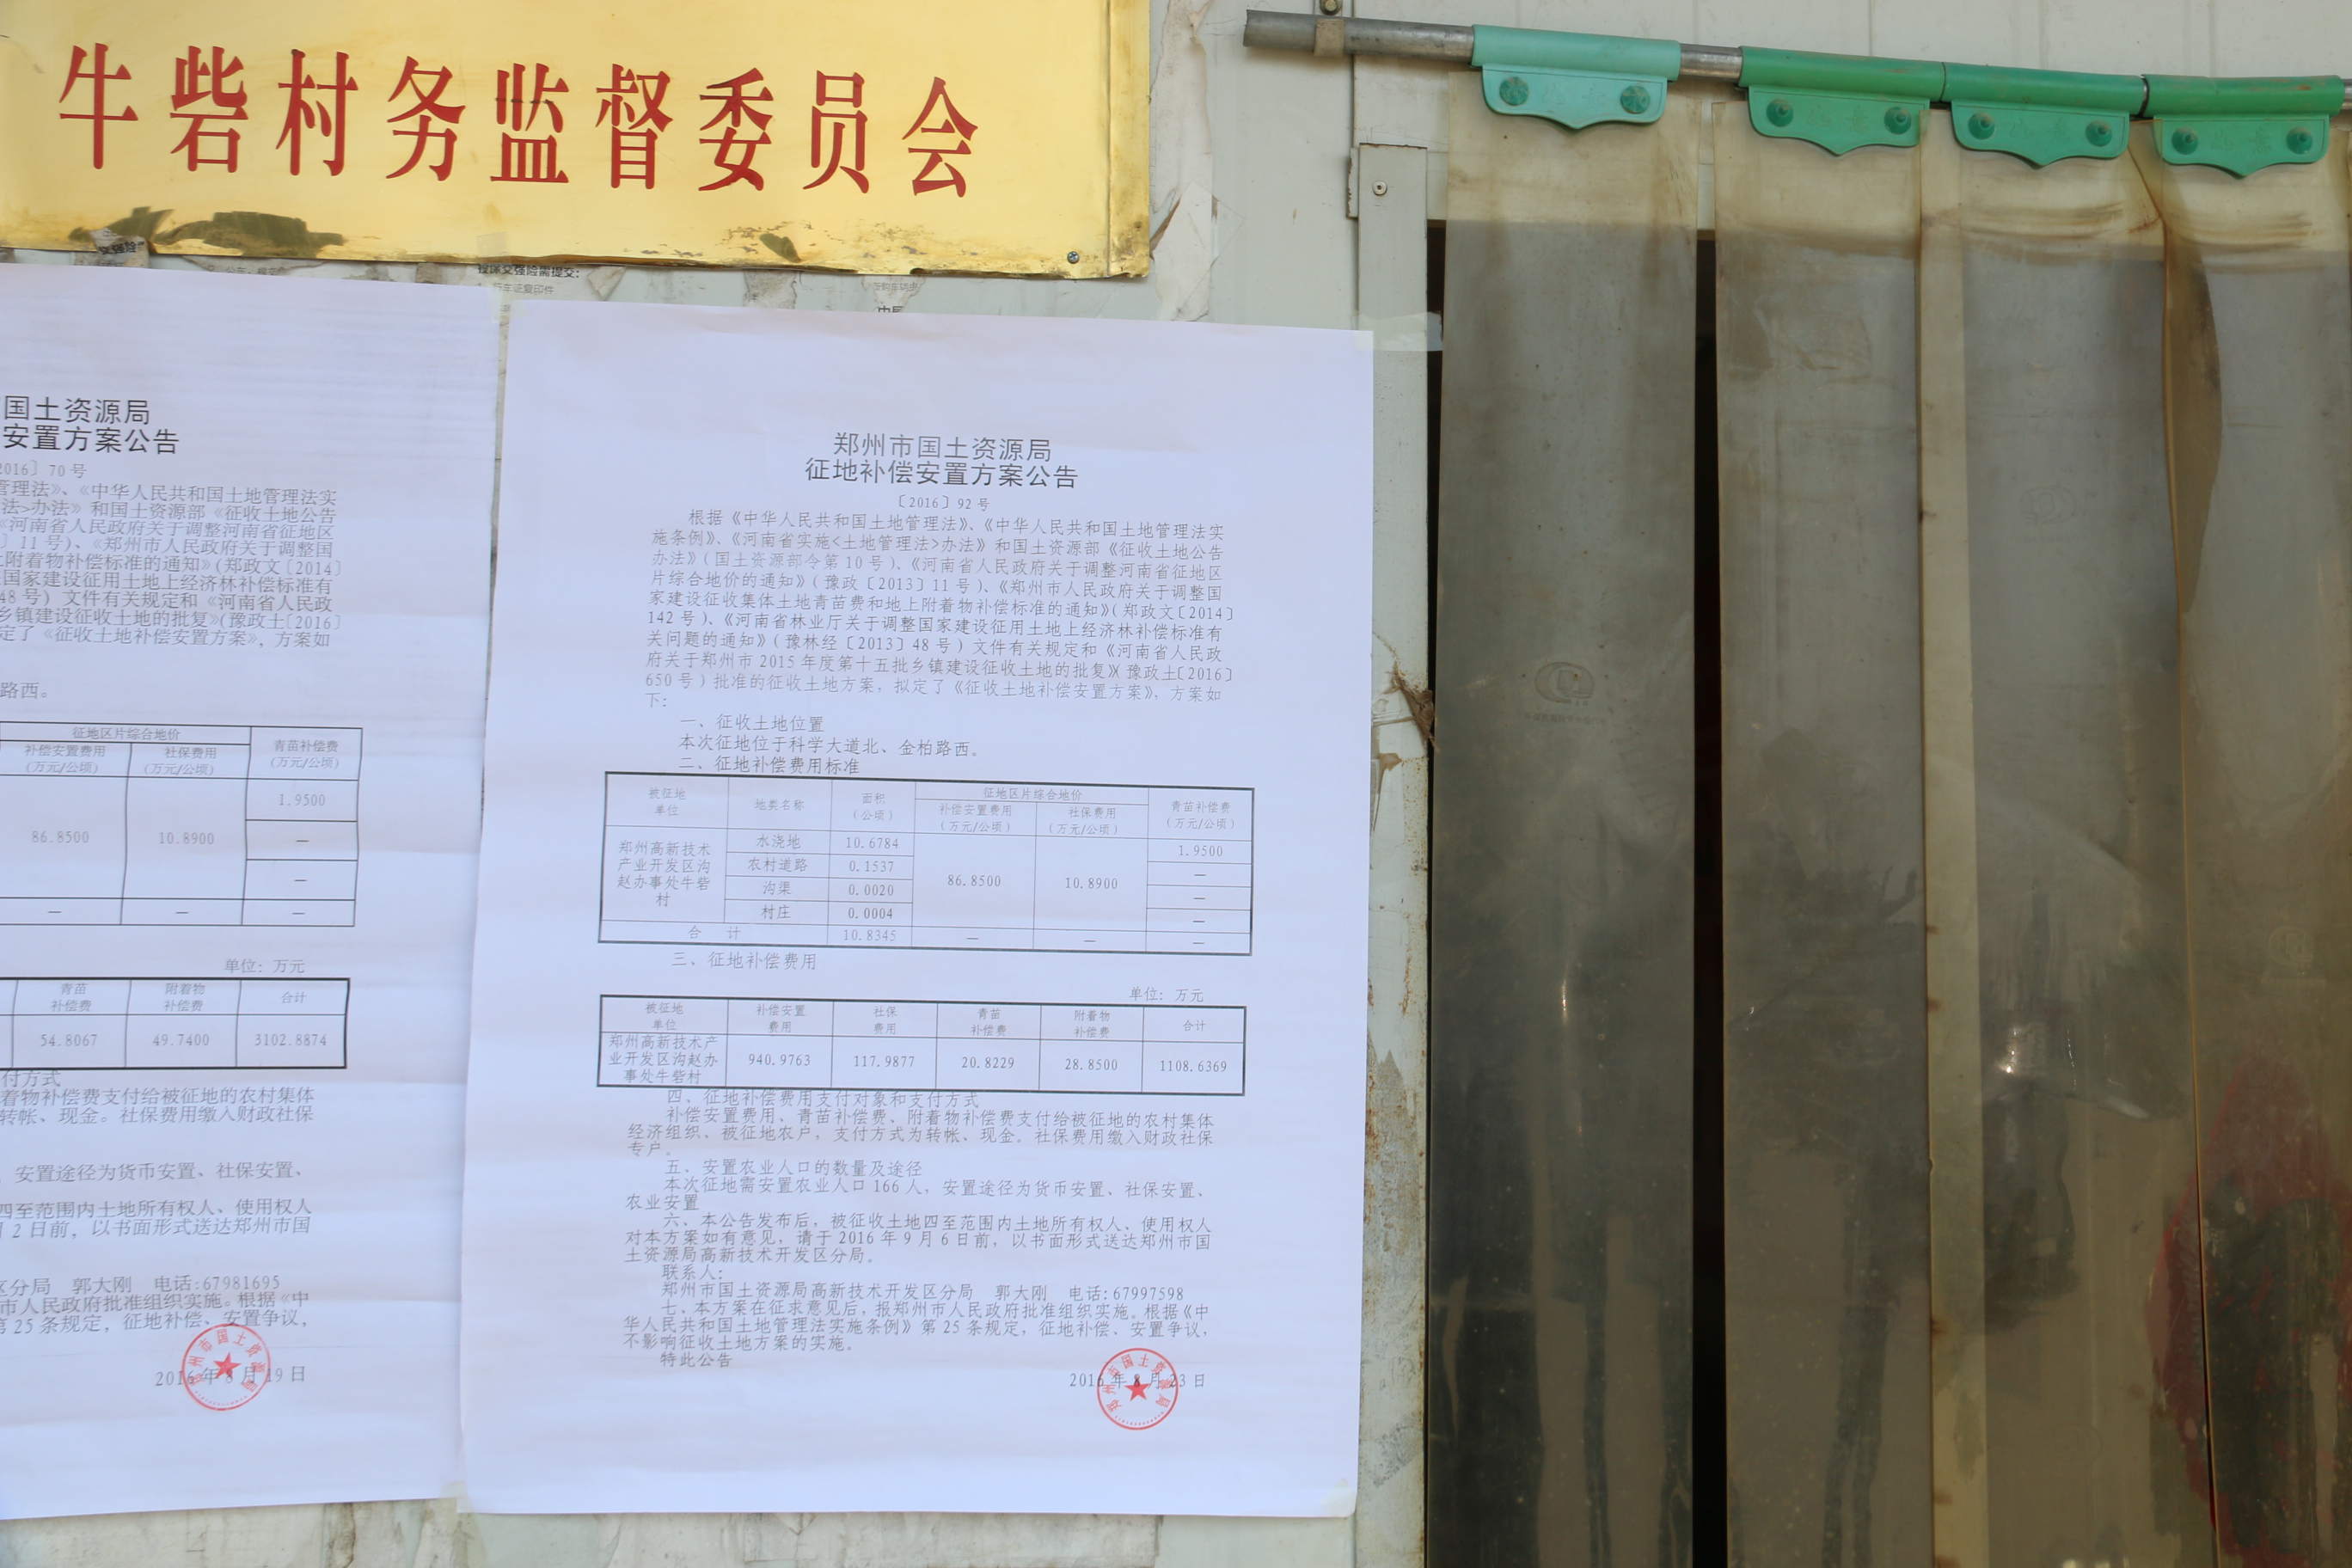 牛砦村务监督委员会
交强险
投保交强险需提交:
行车证复印件
国土资源局
安置方案公告
2016〕70 号
管理法》、《中华人民共和国土地管理法实
法>办法》和国土资源部《征收土地公告
《河南省人民政府关于调整河南省征地区
〕11 号)、《郑州市人民政府关于调整国
上附着物补偿标准的通知》(郑政文〔2014〕
国家建设征用土地上经济林补偿标准有
48 号) 文件有关规定和《河南省人民政
乡镇建设征收土地的批复》(豫政土〔2016〕
定了《征收土地补偿安置方案》, 方案如
路西。
征地区片综合地价
补偿安置费用
(万元/公顷)
社保费用
(万元/公顷)
青苗补偿费
(万元/公顷)
86.8500 10.8900 1.9500
—
—
— — —
单位: 万元
青苗
补偿费
附着物
补偿费
合计
54.8067 49.7400 3102.8874
付方式
着物补偿费支付给被征地的农村集体
转帐、现金。社保费用缴入财政社保
安置途径为货币安置、社保安置、
四至范围内土地所有权人、使用权人
月 2 日前, 以书面形式送达郑州市国
区分局 郭大刚 电话:67981695
市人民政府批准组织实施。根据《中
第 25 条规定, 征地补偿、安置争议,
2016 年 8 月 19 日
郑州市国土资源局
征地补偿安置方案公告
〔2016〕92 号
根据《中华人民共和国土地管理法》、《中华人民共和国土地管理法实
施条例》、《河南省实施<土地管理法>办法》和国土资源部《征收土地公告
办法》(国土资源部令第 10 号)、《河南省人民政府关于调整河南省征地区
片综合地价的通知》(豫政〔2013〕11 号)、《郑州市人民政府关于调整国
家建设征收集体土地青苗费和地上附着物补偿标准的通知》(郑政文〔2014〕
142 号)、《河南省林业厅关于调整国家建设征用土地上经济林补偿标准有
关问题的通知》(豫林经〔2013〕48 号) 文件有关规定和《河南省人民政
府关于郑州市 2015 年度第十五批乡镇建设征收土地的批复》(豫政土〔2016〕
650 号) 批准的征收土地方案, 拟定了《征收土地补偿安置方案》, 方案如
下:
一、征收土地位置
本次征地位于科学大道北、金柏路西。
二、征地补偿费用标准
被征地
单位
地类名称
面积
(公顷)
征地区片综合地价
补偿安置费用
(万元/公顷)
社保费用
(万元/公顷)
青苗补偿费
(万元/公顷)
郑州高新技术
产业开发区沟
赵办事处牛砦
村
水浇地 10.6784 86.8500 10.8900 1.9500
农村道路 0.1537 —
沟渠 0.0020 —
村庄 0.0004 —
合 计 10.8345 — — —
三、征地补偿费用
单位: 万元
被征地
单位
补偿安置
费用
社保
费用
青苗
补偿费
附着物
补偿费
合计
郑州高新技术产
业开发区沟赵办
事处牛砦村
940.9763 117.9877 20.8229 28.8500 1108.6369
四、征地补偿费用支付对象和支付方式
补偿安置费用、青苗补偿费、附着物补偿费支付给被征地的农村集体
经济组织、被征地农户, 支付方式为转帐、现金。社保费用缴入财政社保
专户。
五、安置农业人口的数量及途径
本次征地需安置农业人口 166 人, 安置途径为货币安置、社保安置、
农业安置
六、本公告发布后, 被征收土地四至范围内土地所有权人、使用权人
对本方案如有意见, 请于 2016 年 9 月 6 日前, 以书面形式送达郑州市国
土资源局高新技术开发区分局。
联系人:
郑州市国土资源局高新技术开发区分局 郭大刚 电话:67997598
七、本方案在征求意见后, 报郑州市人民政府批准组织实施。根据《中
华人民共和国土地管理法实施条例》第 25 条规定, 征地补偿、安置争议,
不影响征收土地方案的实施。
特此公告
2016 年 8 月 23 日
郑州市国土资源局